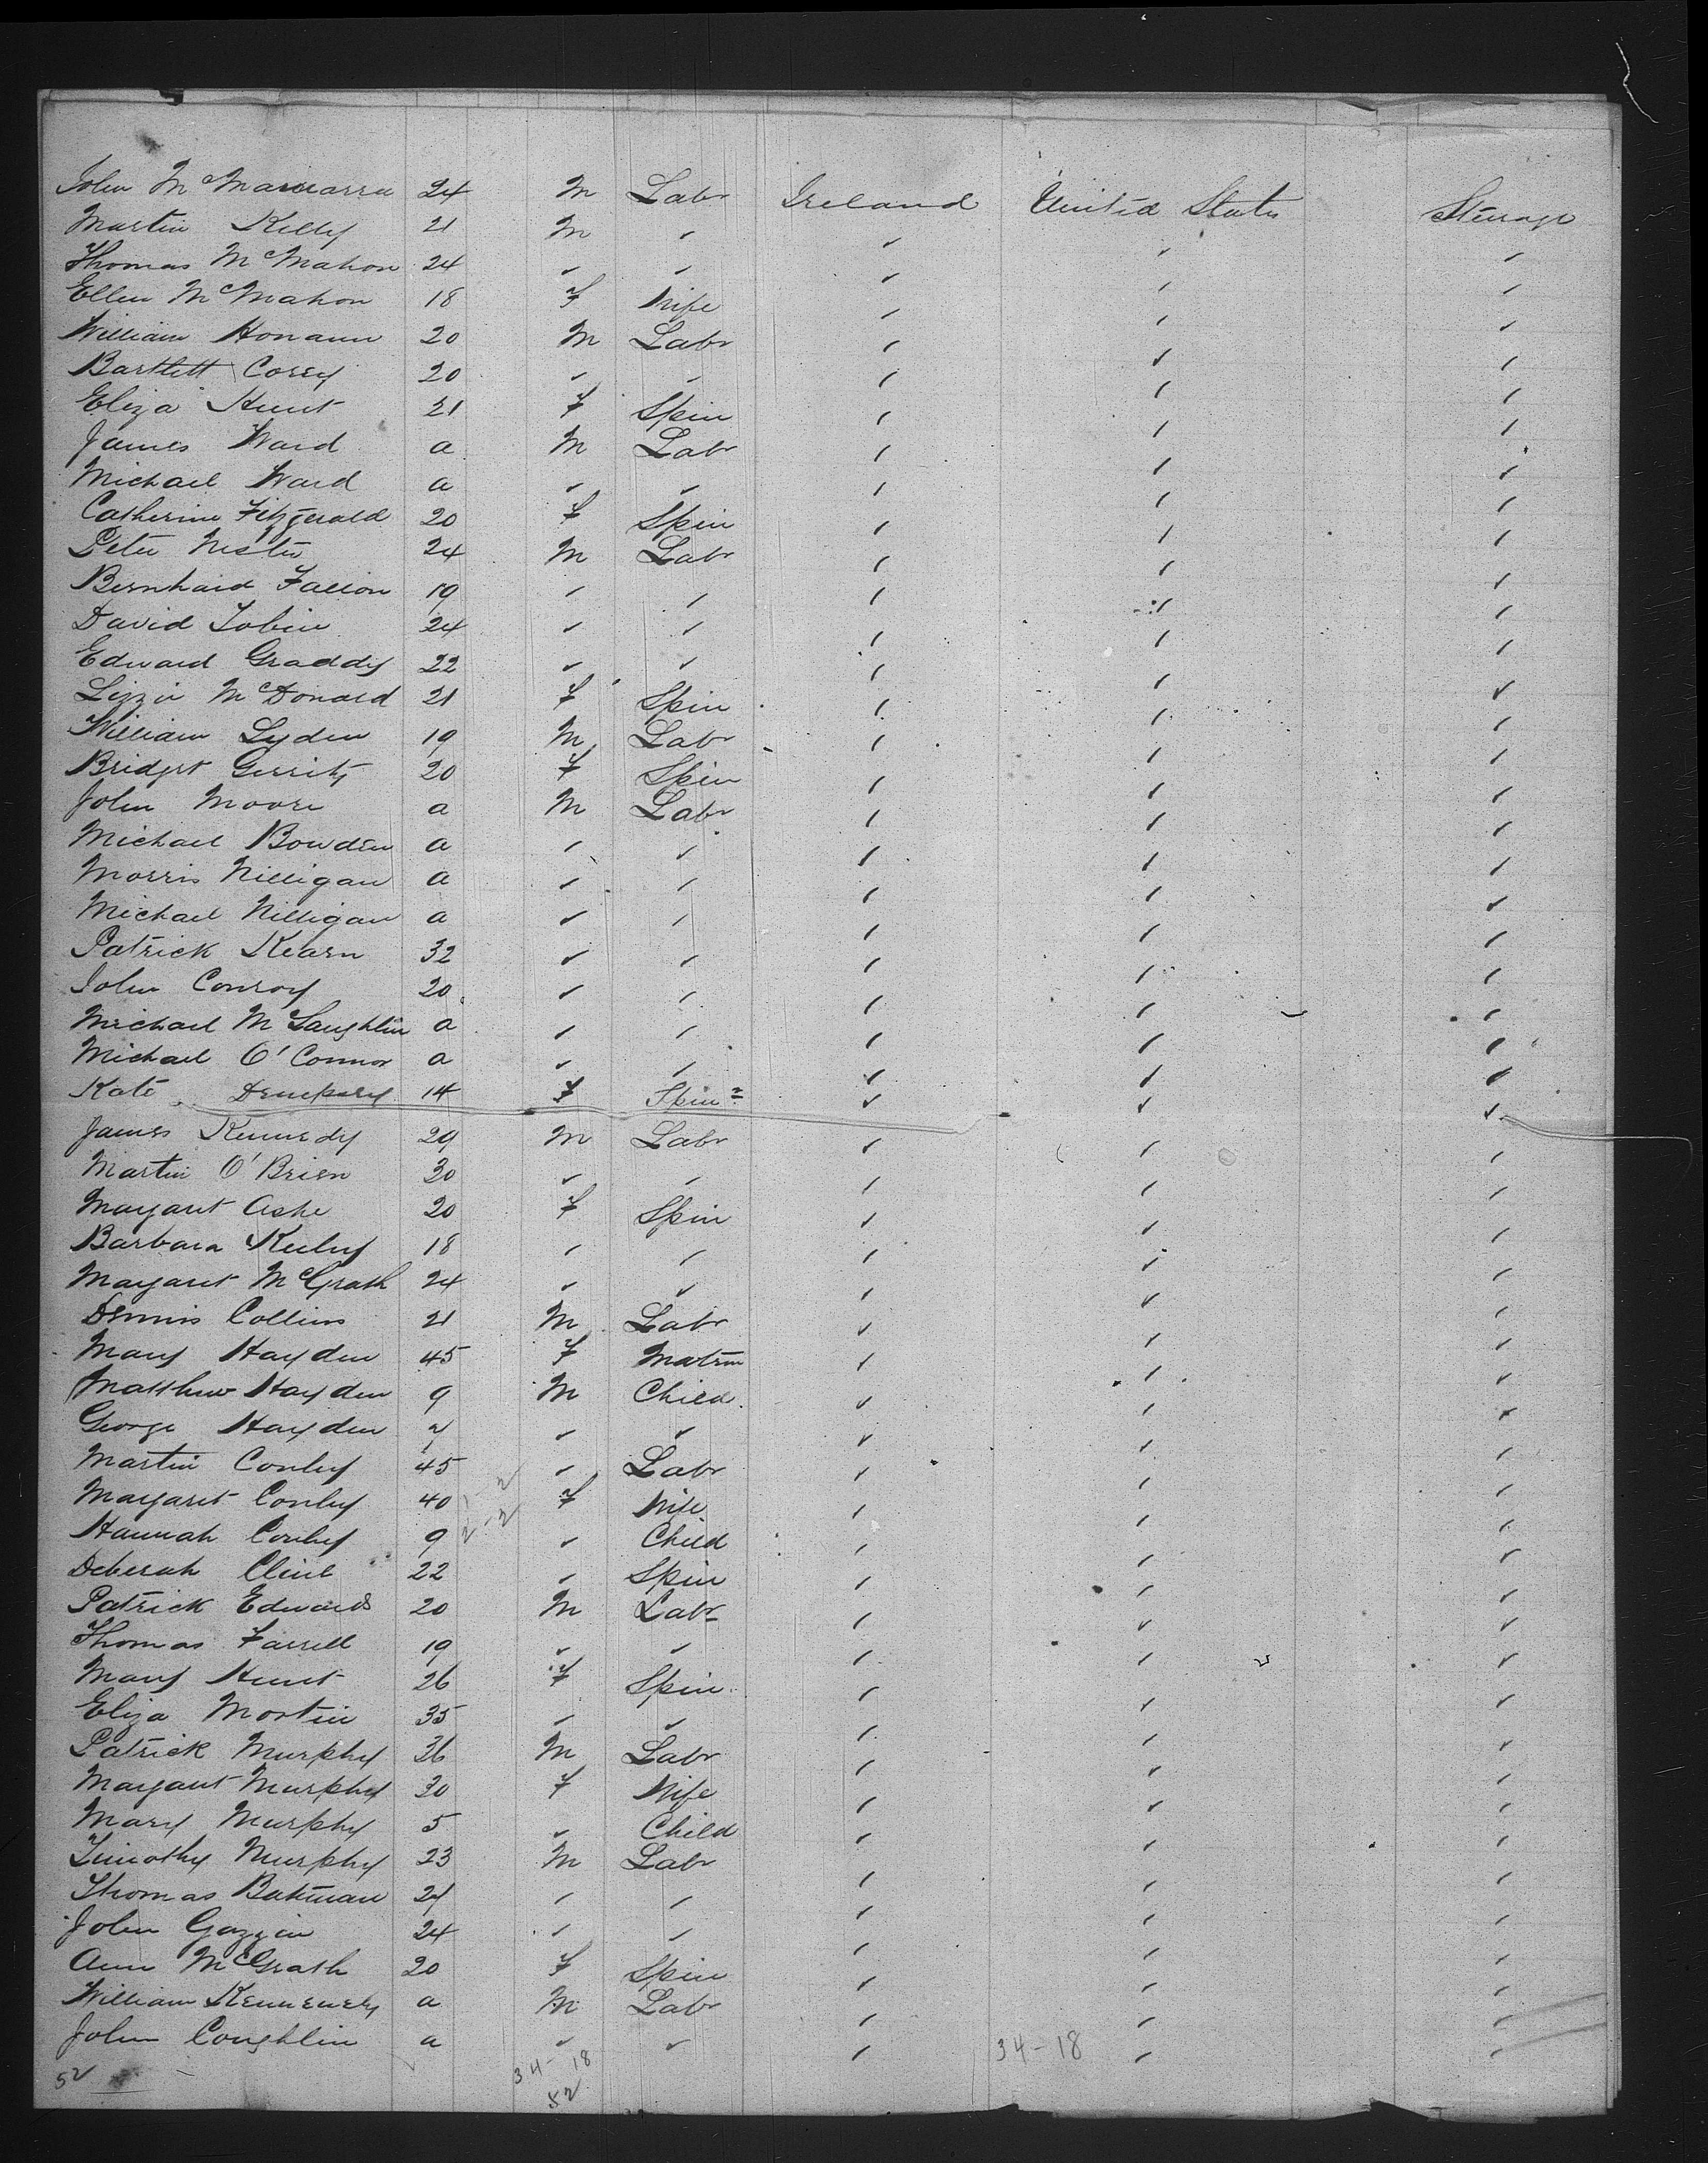 John McMamarra 24 M Labr Ireland United States Steerage
Martin Kelly 21 M " " " "
Thomas McMahon 24 " " " " "
Ellen McMahon 18 F Wife " " "
William Honann 20 M Labr " " "
Bartlett Corey 20 " " " " "
Eliza Hunt 21 F Spin " " "
James Ward a M Labr " " "
Michael Ward a " " " " "
Catherine Fitzgerald 20 F Spin " " "
Peter Nester 24 M Labr " " "
Bernhard Fallon 19 " " " " "
David Tobin 24 " " " " "
Edward Graddy 22 " " " " "
Lizzie McDonald 21 F Spin " " "
William Lyden 19 M Labr " " "
Bridget Gerrity 20 F Spin " " "
John Moore a M Labr " " "
Michael Bowden a " " " " "
Morris Nilligan a " " " " "
Michael Nilligan a " " " " "
Patrick Kearn 32 " " " " "
John Conroy 20 " " " " "
Michael McLaughlin a " " " " "
Michael O'Connor a " " " " "
Kate Dempsey 14 F Spin " " "
James Kennedy 29 M Labr " " "
Martin O'Brien 30 " " " " "
Margaret Ashe 20 F Spin " " "
Barbara Keeley 18 " " " " "
Margaret McGrath 24 " " " " "
Dennis Collins 21 M Labr " " "
Mary Hayden 45 F Matron " " "
Matthew Hayden 9 M Child " " "
George Hayden " " " " "
Martin Conley 45 " Labr " " "
Margaret Conley 40 F Wife " " "
Hannah Conley 9 " Child " " "
Deberah Cline 22 " Spin " " "
Patrick Edwards 20 M Labr " " "
Thomas Farrell 19 " " " " "
Mary Hunt 26 F Spin " " "
Eliza Martin 35 " " " " "
Patrick Murphy 36 M Labr " " "
Margaret Murphy 30 F Wife " " "
Mary Murphy 5 " Child " " "
Timothy Murphy 23 M Labr " " "
Thomas Bateman 24 " " " " "
John Gazzin 24 " " " " "
Ann McGrath 20 F Spin " " "
William a M Labr " " "
John Coughlin a " " " " "
52 34-18 34-18
52